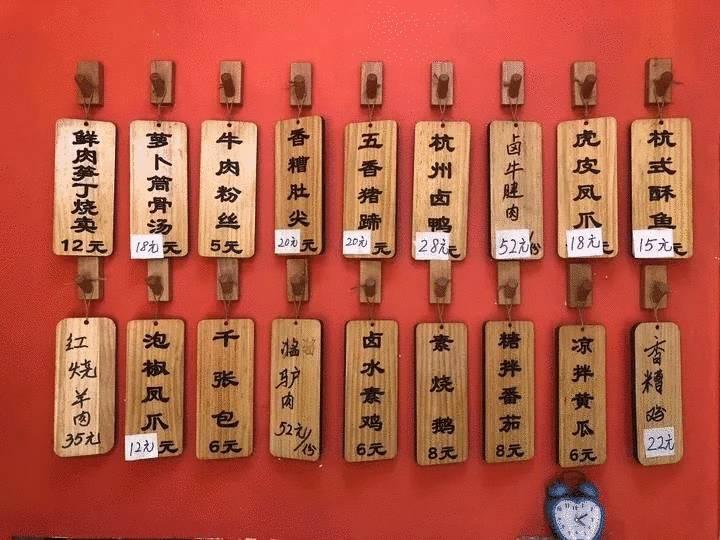 鲜肉笋丁烧卖
12元
萝卜筒骨汤
18元元
牛肉粉丝
5元
香糟肚尖
20元元
五香猪蹄
20元元
杭州卤鸭
28元元
卤牛腱肉
52元/份
虎皮凤爪
18元元
杭式酥鱼
15元元
红烧羊肉
35元
泡椒凤爪
12元元
千张包
6元
驴肉
52元/份
卤水素鸡
6元
素烧鹅
8元
糖拌番茄
8元
凉拌黄瓜
6元
香糟
22元